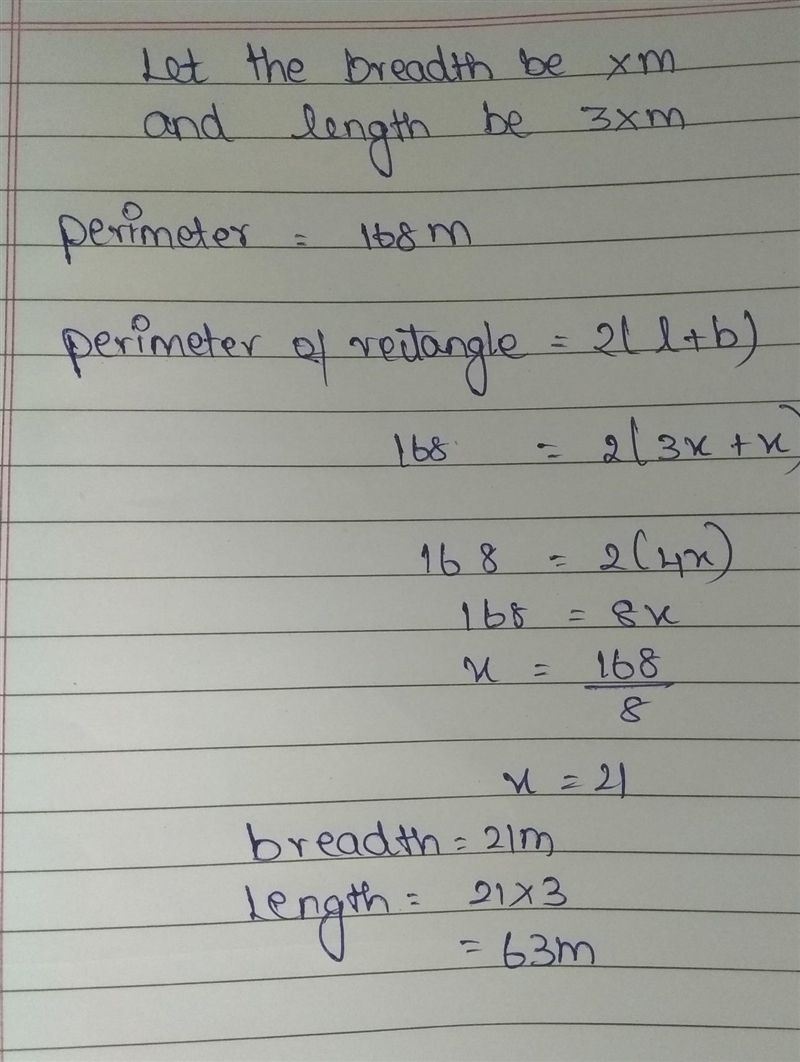 Let the breadth be xm
and length be 3xm
perimeter = 168m
perimeter of rectangle = 2(l+b)
168 = 2(3x+x)
168 = 2(4x)
168 = 8x
x = 168/8
x = 21
breadth = 21m
Length = 21×3
= 63m